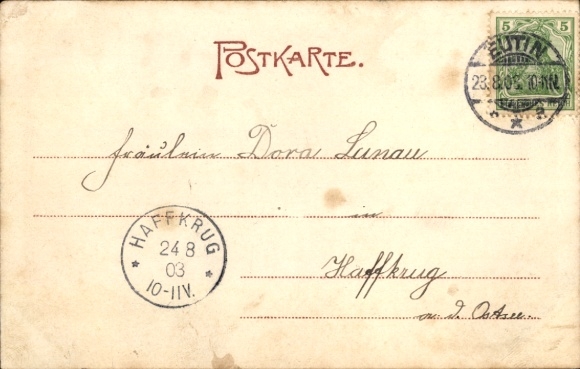 POSTKARTE.
5 5
EUTIN
23.8.03. 10-11N.
* a
Fräulein Dora Lunau
in
Haffkrug
a. d. Ostsee.
HAFFKRUG
24 8
03
10-11V.